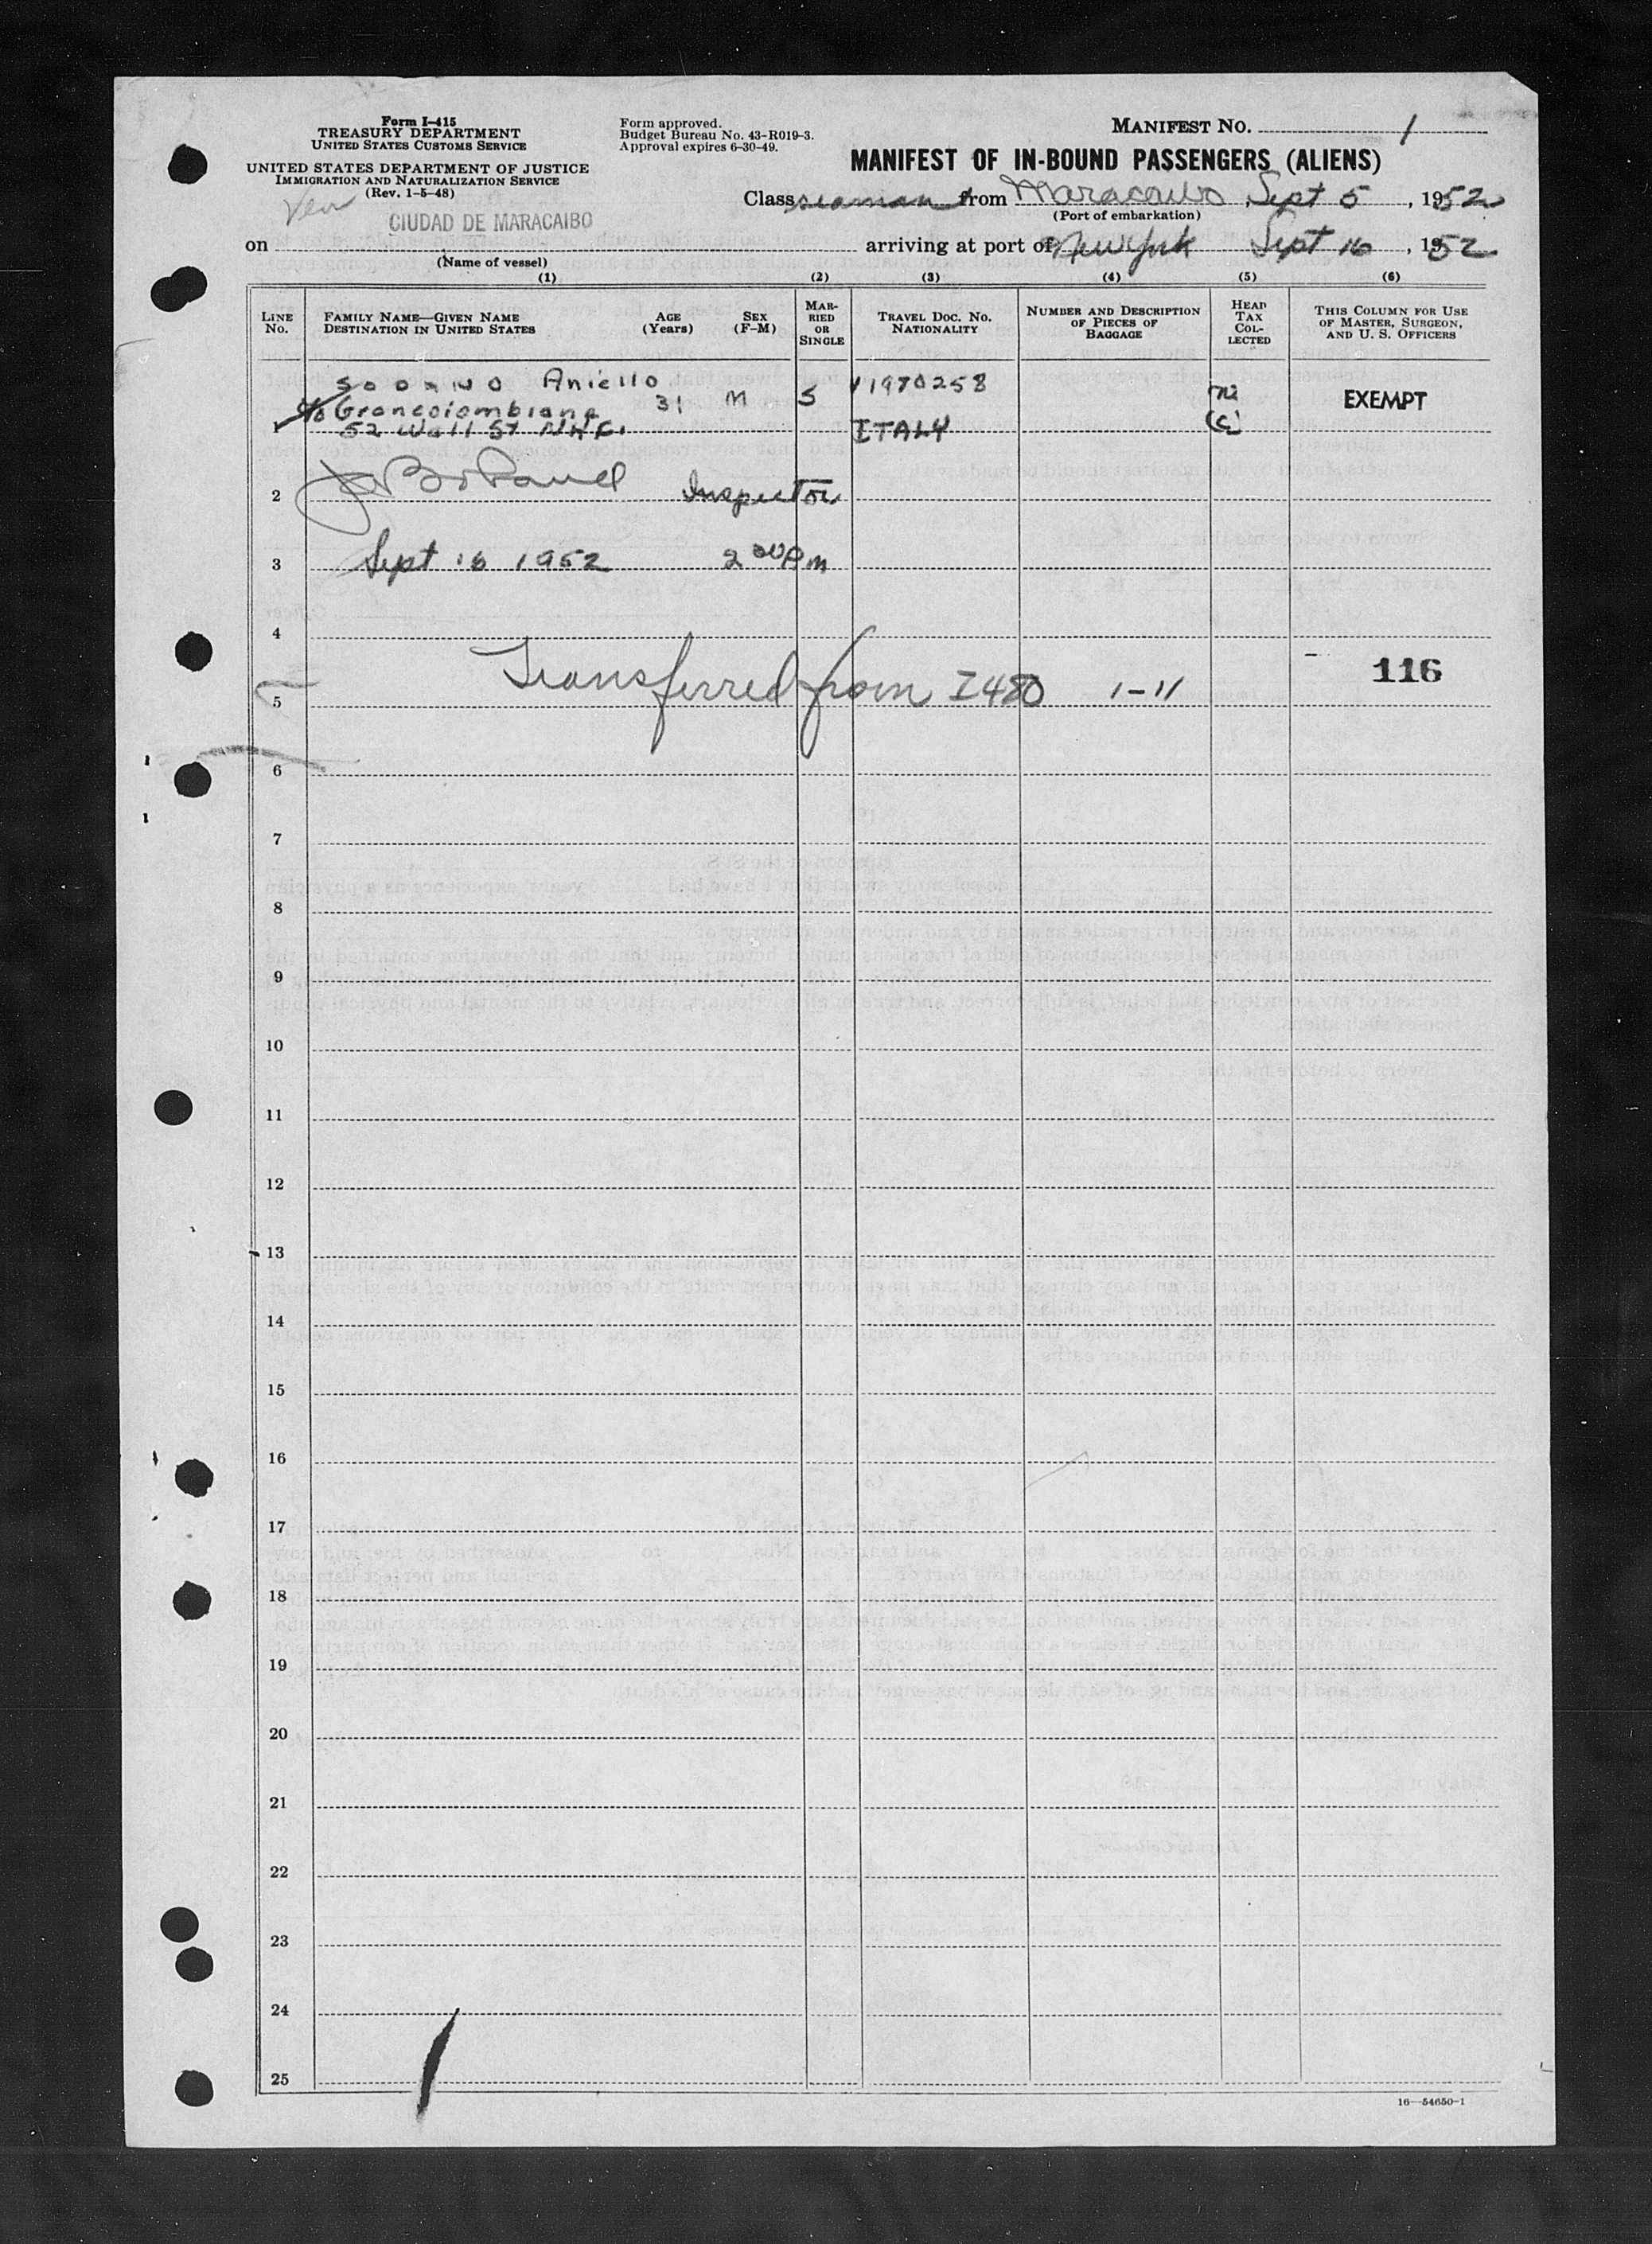 Form I-415
TREASURY DEPARTMENT
UNITED STATES CUSTOMS SERVICE
UNITED STATES DEPARTMENT OF JUSTICE
IMMIGRATION AND NATURALIZATION SERVICE
(Rev. 1-5-48)
Form approved.
Budget Bureau No. 43-R019-3.
Approval expires 6-30-49.
MANIFEST NO. 1
MANIFEST OF IN-BOUND PASSENGERS (ALIENS)
Class seaman from Maracaibo, Sept 5, 1952
(Port of embarkation)
CIUDAD DE MARACAIBO
on arriving at port of New York Sept 16, 1952
(Name of vessel)
(1) (2) (3) (4) (5) (6)
LINE No.
FAMILY NAME—GIVEN NAME
DESTINATION IN UNITED STATES
AGE (Years)
SEX (F-M)
MARRIED OR SINGLE
TRAVEL DOC. NO.
NATIONALITY
NUMBER AND DESCRIPTION OF PIECES OF BAGGAGE
HEAD TAX COLLECTED
THIS COLUMN FOR USE OF MASTER, SURGEON, AND U. S. OFFICERS
Aniello V1980258
c/o Grancolombiana 31 M S EXEMPT
1 52 Wall St ITALY
2 Inspector
3 Sept 16 1952 2 00 Pm
4
116
5 Transferred from I480 1-11
6
7
8
9
10
11
12
13
14
15
16
17
18
19
20
21
22
23
24
25
16—54650-1